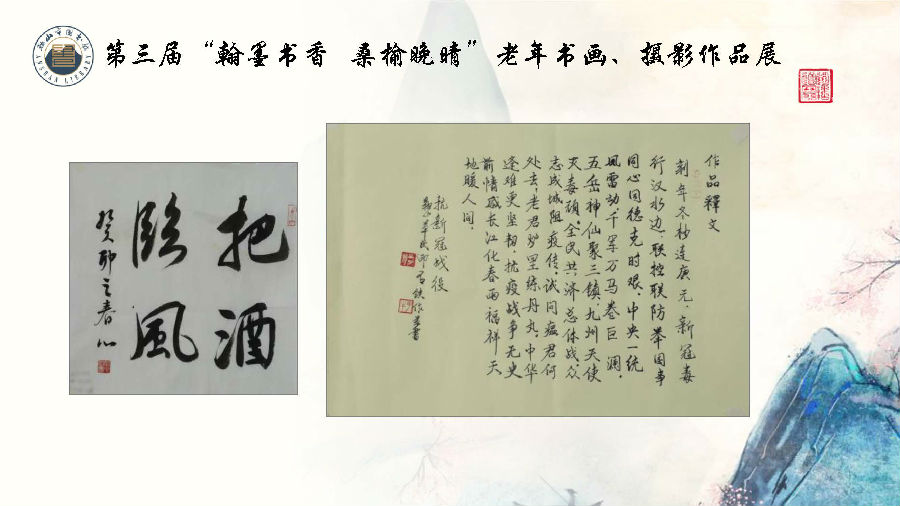 第三届“翰墨书香 桑榆晚晴”老年书画、摄影作品展
把酒
临風
癸卯之春
作品釋文
刻年冬杪连庚元，新冠毒
行汉水边，联控联防举国事
同心同德克时艰，中央一统
風雷动，千军万马卷巨澜，
五岳神仙聚三镇，九州天使
灭毒顽，全民共济总体战，众
志成城阻疫传，试问瘟君何
处去，老君炉里炼丹丸，中华
逢难更坚韧，抗疫战争无史
前，情感长江化春雨，福祥天
地暖人间，
抗新冠战役